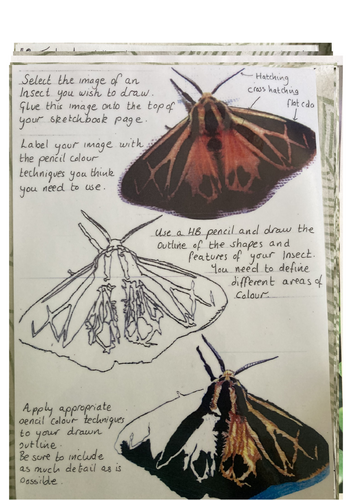 Select the image of an
Insect you wish to draw.
Glue this image onto the top of
your sketchbook page.
Label your image with
the pencil colour
techniques you think
you need to use.
Hatching
cross hatching
flat colo
Use a HB pencil and draw the
outline of the shapes and
features of your Insect.
You need to define
different areas of
Colour.
Apply appropriate
pencil colour techniques
to your drawn
outline.
Be sure to include
as much detail as is
possible.